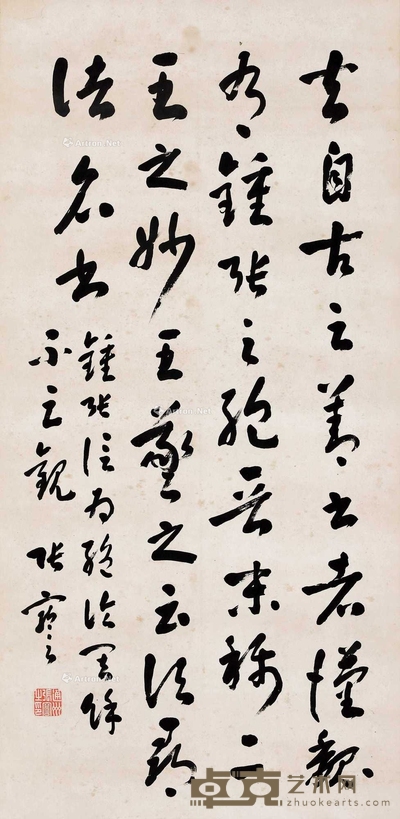 夫自古之善書者漢魏
有鍾張之絕晉末稱二
王之妙王羲之云頃尋
諸名書
鍾張信為絕倫其餘
不足觀 張
Artron.Net
卓克艺术网
zhuokearts.com